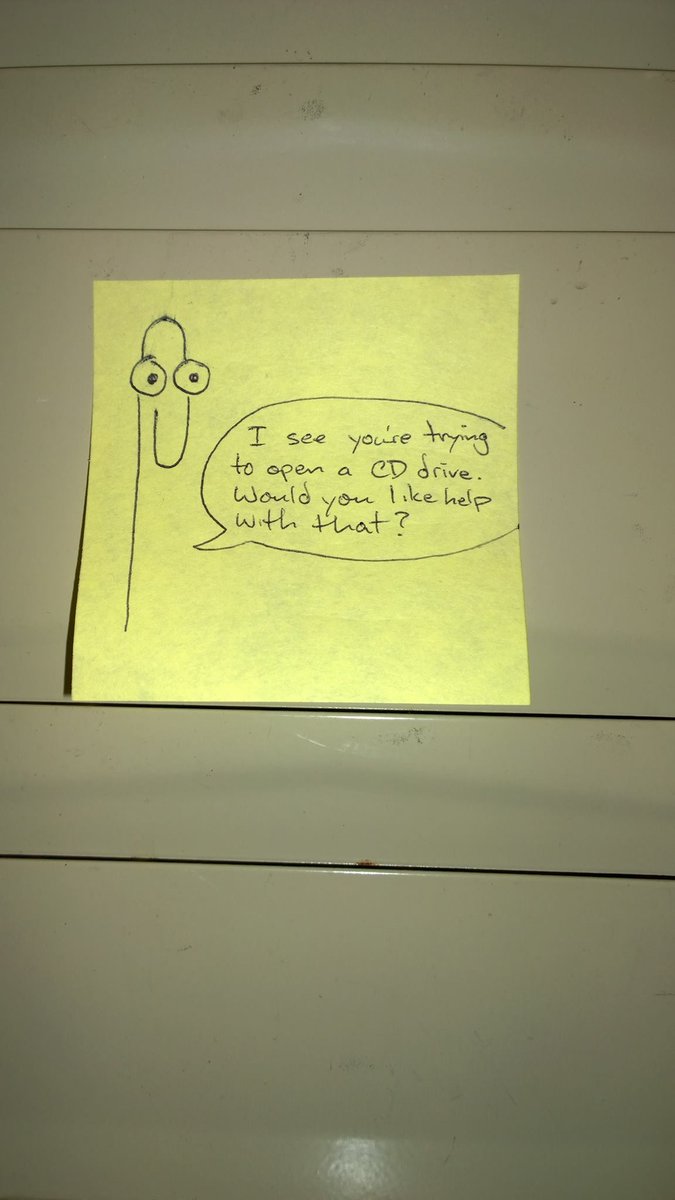 I see you're trying
to open a CD drive.
Would you like help
with that?